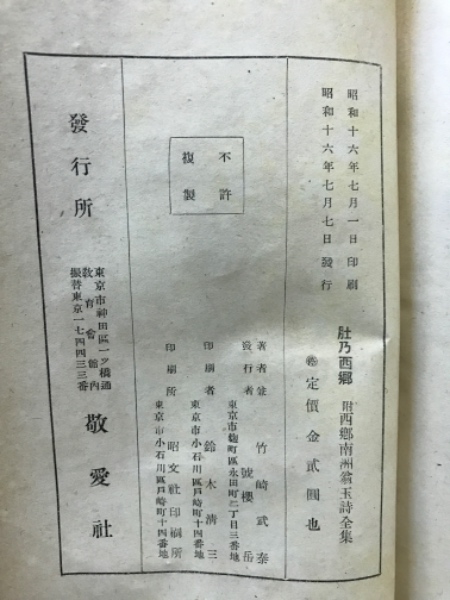 昭和十六年七月一日印刷
昭和十六年七月七日發行
肚乃西郷 附西郷南洲翁玉詩全集
定價金貳圓也
不許
複製
著者兼
發行者
竹崎武泰
號櫻岳
東京市麴町區永田町二丁目三番地
印刷者 鈴木清三
東京市小石川區戸崎町十四番地
印刷所 昭文社印刷所
東京市小石川區戸崎町十四番地
發行所
東京市神田區一ツ橋通
教育會館內
振替東京一七四四三三番
敬愛社